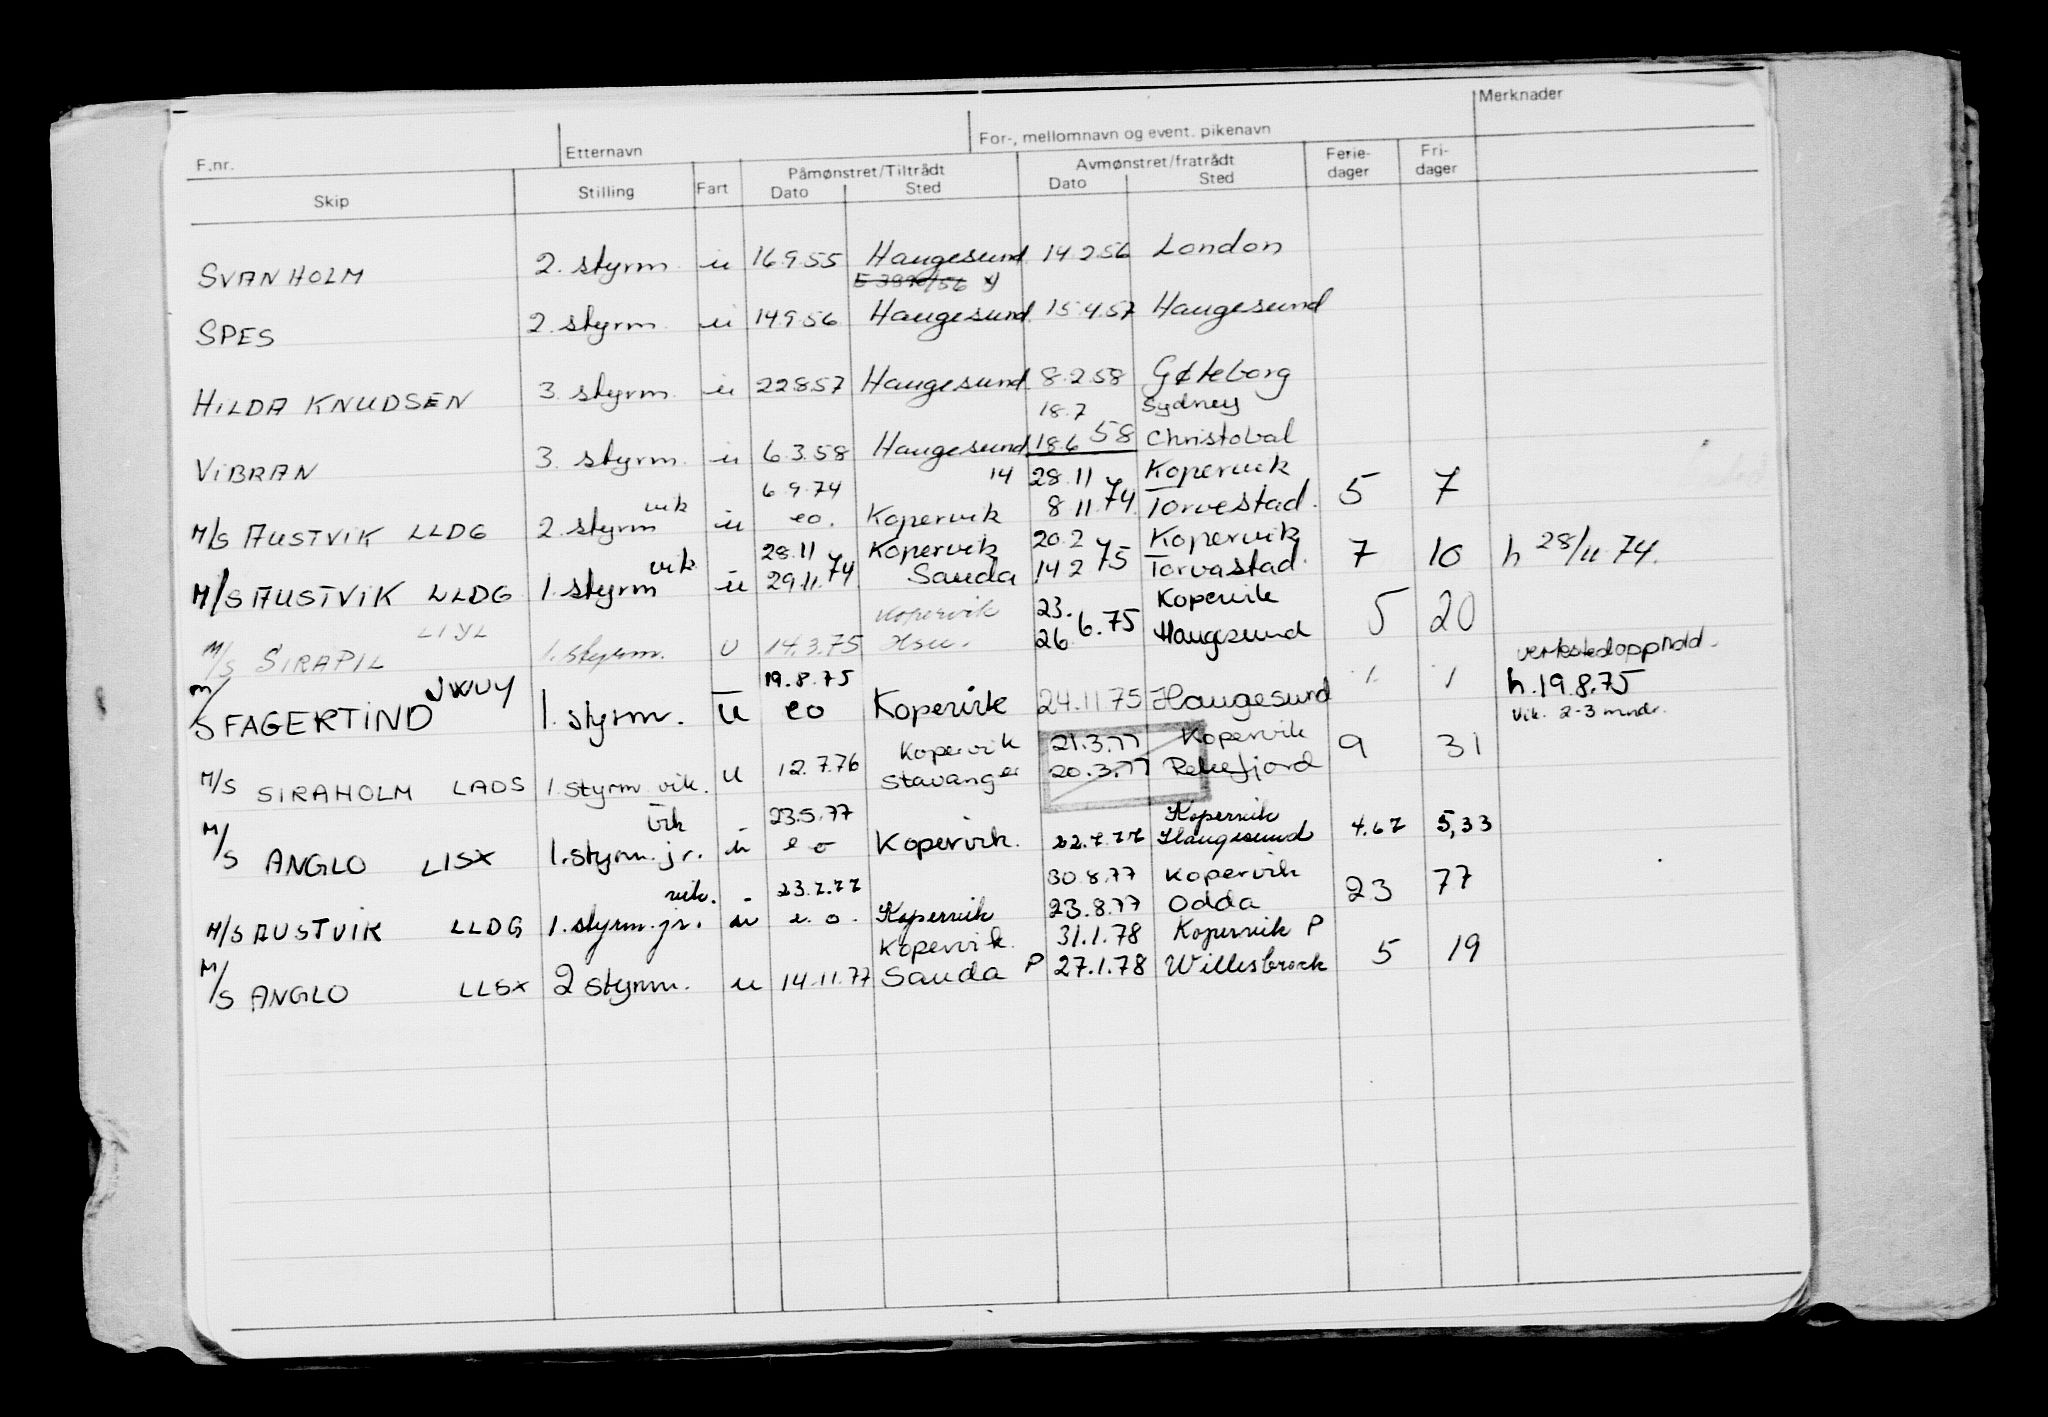 F.nr. Etternavn For-, mellomnavn og event. pikenavn Merknader
Skip Stilling Fart Påmønstret/Tiltrådt Dato Sted Avmønstret/fratrådt Dato Sted Ferie-dager Fri-dager
SVANHOLM 2. styrm. u 16.9.55 Haugesund 14.2.56 London
SPES 2. styrm. u 14.9.56 Haugesund 15.4.57 Haugesund
HILDA KNUDSEN 3. styrm. u 22.8.57 Haugesund 8.2.58 Gøteborg
18.7 Sydney
VIBRAN 3. styrm. u 6.3.58 Haugesund 18.6 58 Christobal
6.9.74 14 28.11 Kopervik
M/S AUSTVIK LLDG 2. styrm vik u eo. Kopervik 8.11.74 Torvestad. 5 7
28.11 Kopervik 20.2 Kopervik
M/S AUSTVIK LLDG 1. styrm vik u 29.11.74 Sauda 14.2 75 Torvastad. 7 10 h 28/11 74.
Kopervik 23. Kopervik
M/S SIRAPIL LIYL 1. styrm. u 14.3.75 Hsu. 26.6.75 Haugesund 5 20
19.8.75 verkstedopphold.
M/S FAGERTIND JWUY 1. styrm. u eo Kopervik 24.11.75 Haugesund 1. 1 h. 19.8.75
Vik. 2-3 mndr.
Kopervik 21.3.77 Kopervik
M/S SIRAHOLM LADS 1. styrm vik. u 12.7.76 Stavanger 20.3.77 Rekefjord 9 31
vik 23.5.77 Kopervik
M/S ANGLO LISX 1. styrm. jr. u eo Kopervik. 22.7.77 Haugesund 4.67 5,33
vik. 23.7.77 30.8.77 Kopervik
M/S AUSTVIK LLDG 1. styrm. jr. u e.o. Kopervik 23.8.77 Odda 23 77
Kopervik. 31.1.78 Kopervik P
M/S ANGLO LLSX 2 styrm. u 14.11.77 Sauda P 27.1.78 Willesbroek 5 19